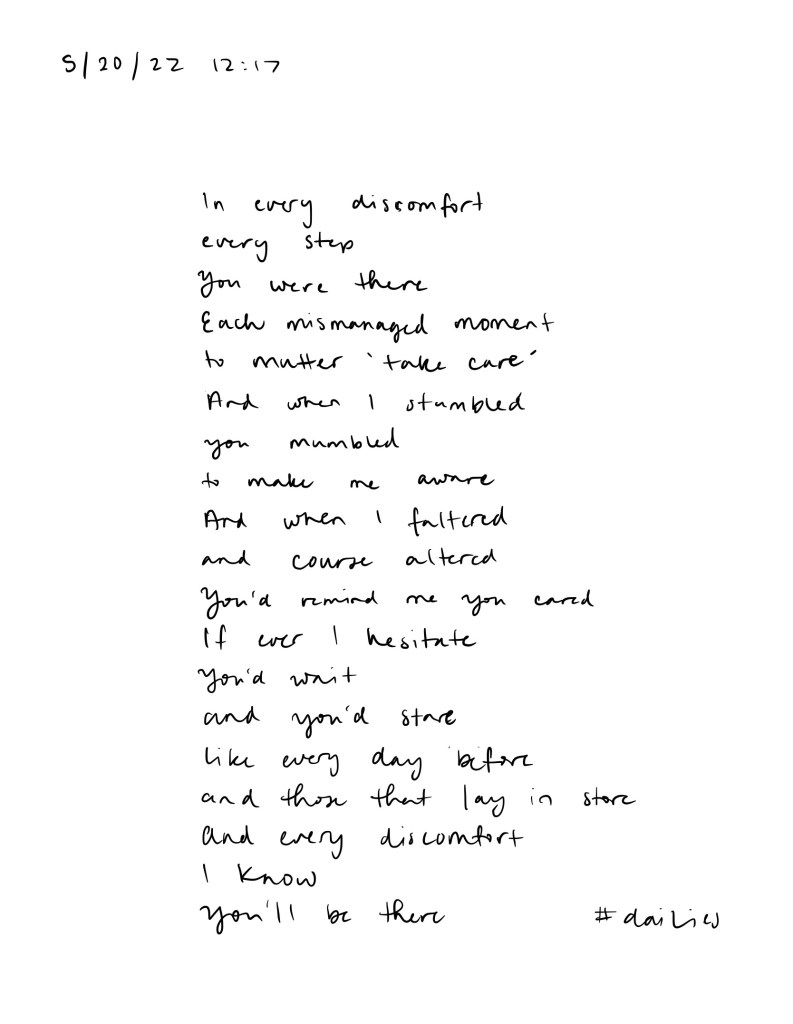 5/20/22 12:17
In every discomfort
every step
You were there
Each mismanaged moment
to mutter 'take care'
And when I stumbled
you mumbled
to make me aware
And when I faltered
and course altered
You'd remind me you cared
If ever I hesitate
You'd wait
and you'd stare
like every day before
and those that lay in store
and every discomfort
I know
you'll be there #dailies